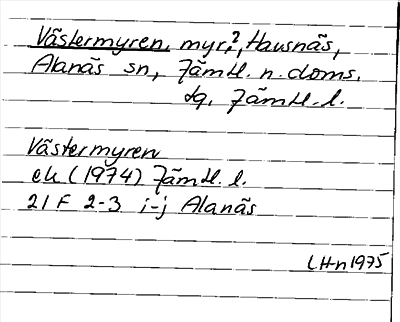 Västermyren, myr?, Hausnäs,
Alanäs sn, Jämtl. n. doms.
dg, Jämtl. l.
Västermyren
ek (1974) Jämtl. l.
21 F 2-3 i-j Alanäs
LHn 1975